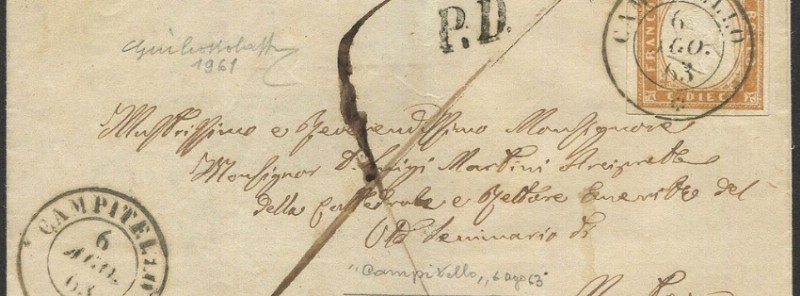 P.D.
CAMPITELLO
6
AGO.
63
FRANCO
C. DIECI
1961
Illustrissimo e Reverendissimo Monsignore
Monsignor D. Luigi Martini Arciprete
della Cattedrale e Rettore Emerito del
Seminario di
"Campitello,, 6 ago 63"
CAMPITELLO
6
AGO.
63